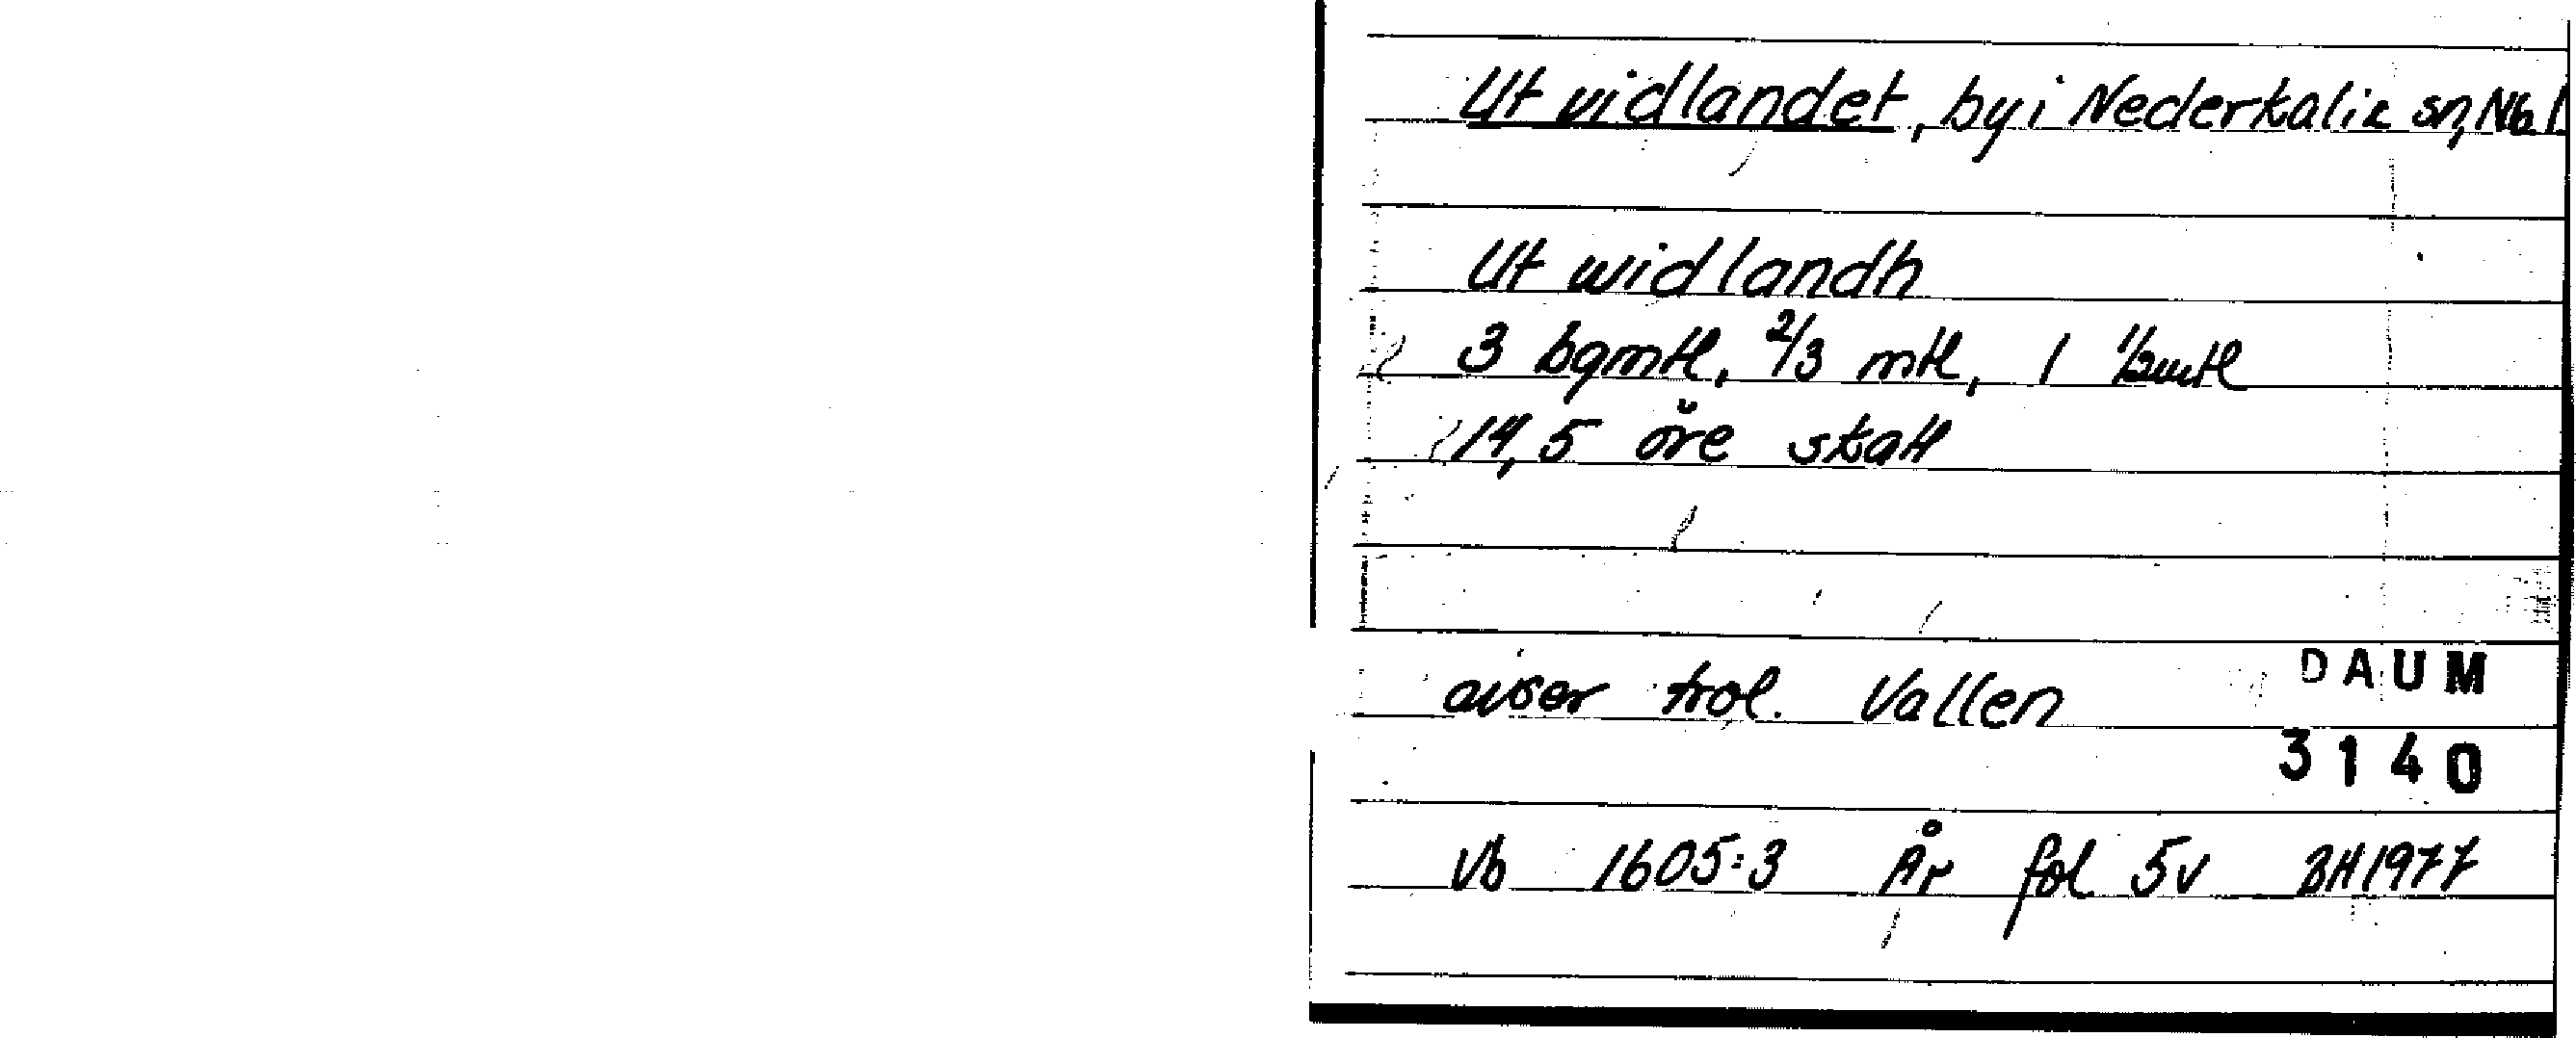 Ut vidlandet, by i Nederkalix sn, Nb l
Ut widlandh
3 bgmtl, 2/3 mtl, 1 1/2mtl
14,5 öre skatt
avser trol. Vallen
DAUM
3140
Vb 1605:3 År fol 5v BH1977